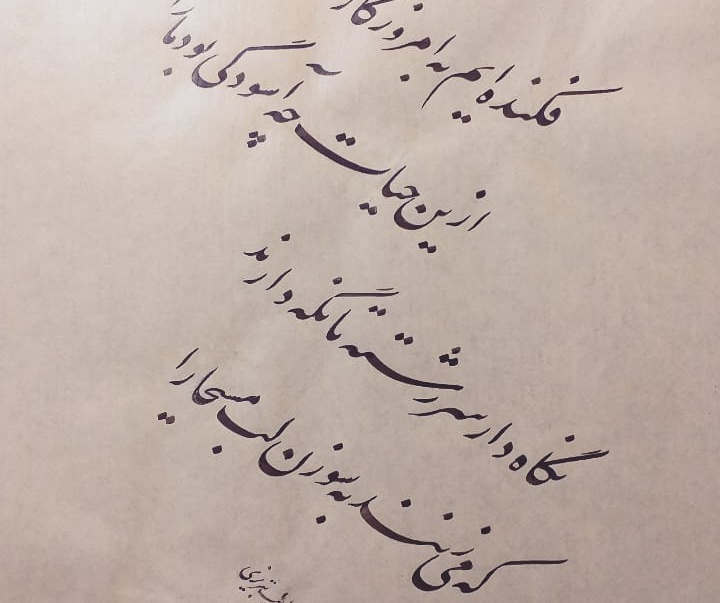 فکنده ایم به امروز کار
ازین حیات چه آسودگی بود ما
نگاه دار سررشته تا نگه دارند
که می زنند به سوزن لب مسیحا را
تبریزی